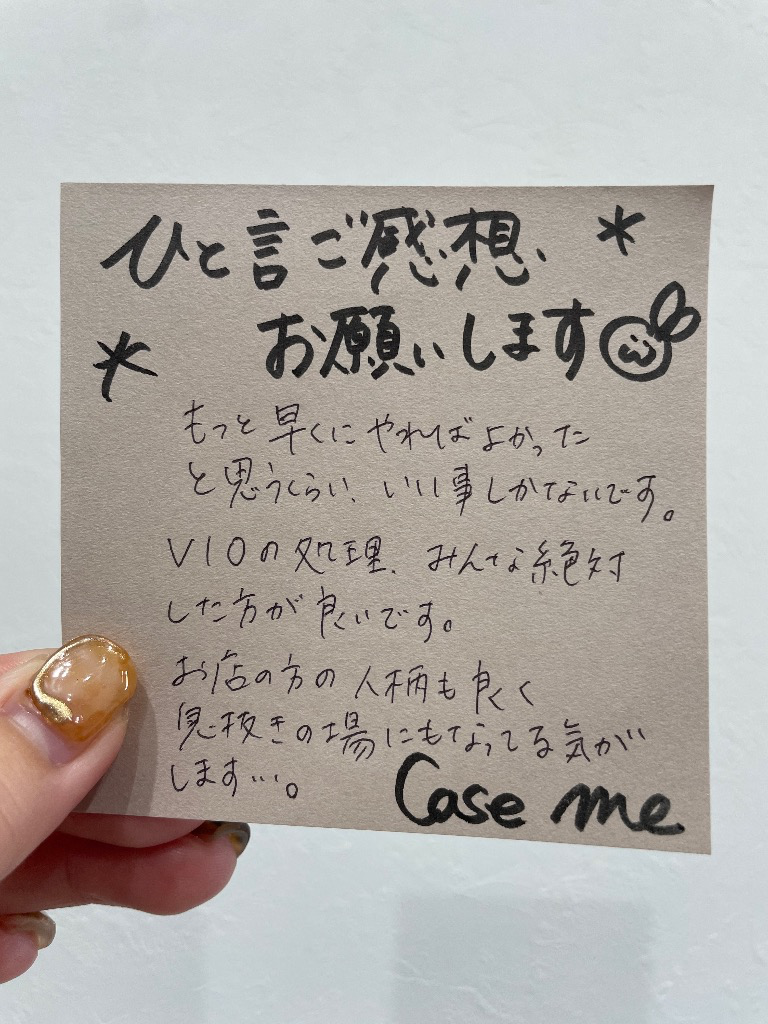 ひと言ご感想
お願いします
もっと早くにやればよかった
と思うくらい、いい事しかないです。
VIOの処理、みんな絶対
した方が良いです。
お店の方の人柄も良く
息抜きの場にもなってる気が
します…。
Case me